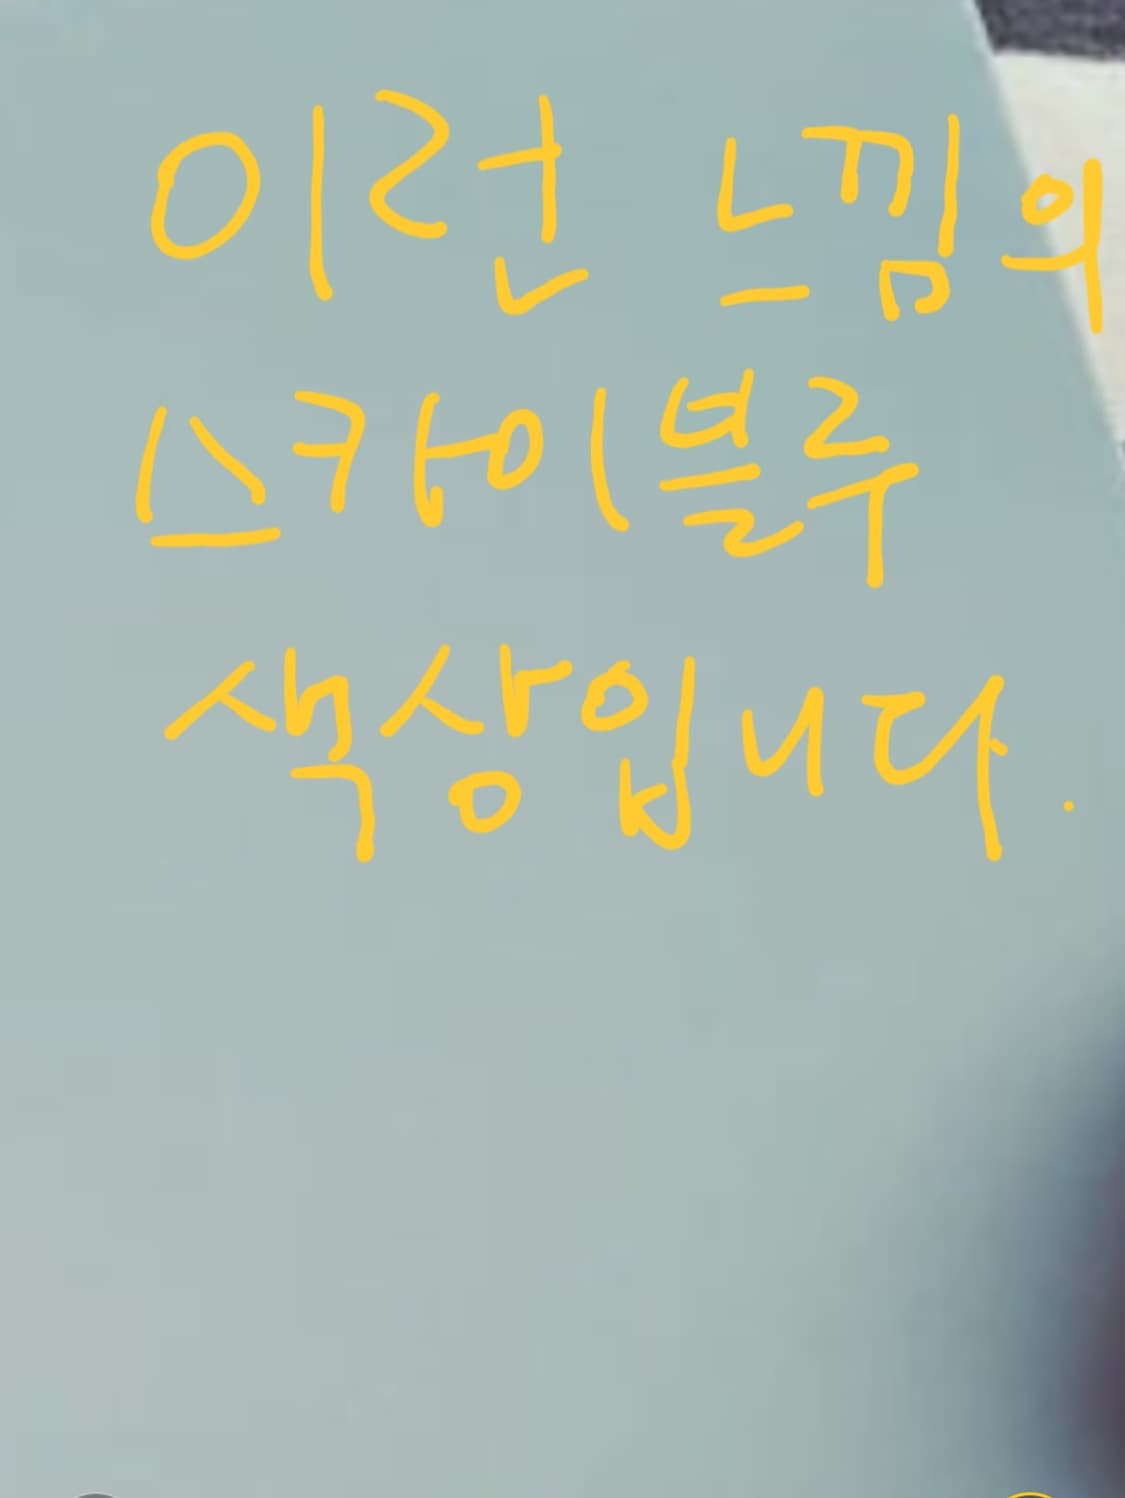 이런 느낌의
스카이블루
색상입니다.